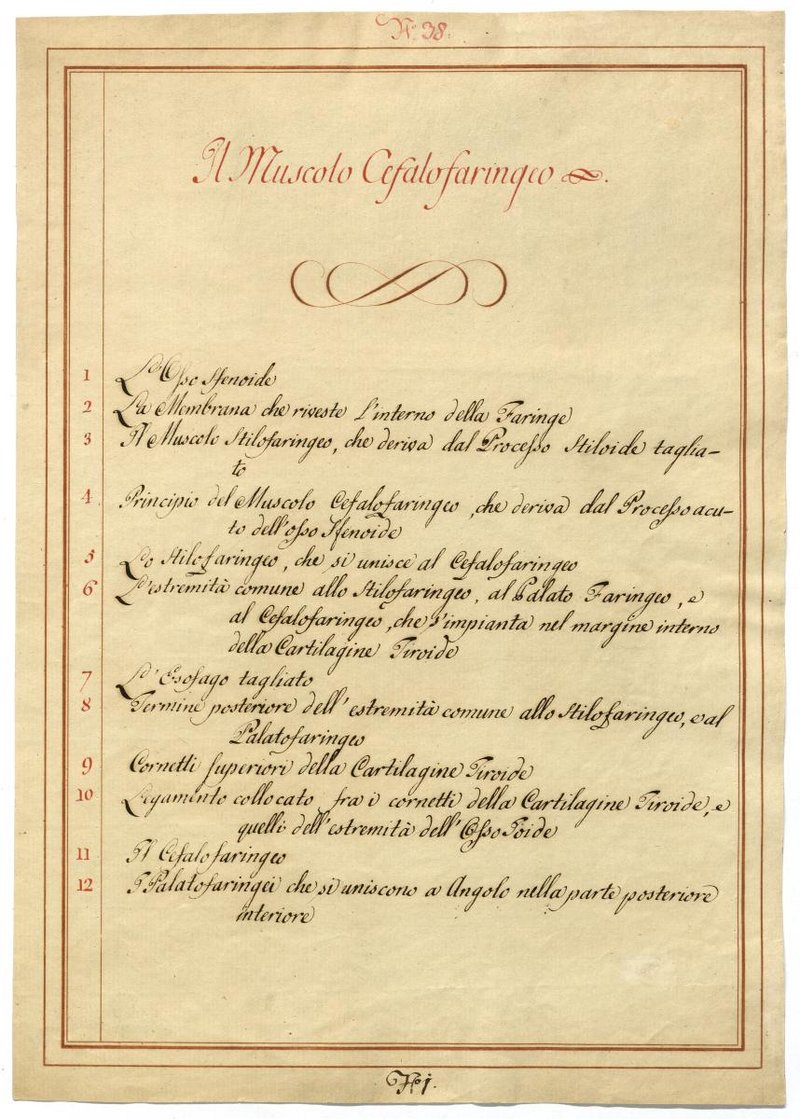 N.º 38.
Il Muscolo Cefalofaringeo
1 L'Osso Sfenoide
2 La Membrana che riveste l'interno della Faringe
3 Il Muscolo Stilofaringeo, che deriva dal Processo Stiloide taglia-
to
4 Principio del Muscolo Cefalofaringeo, che deriva dal Processo acu-
to dell'osso Sfenoide
5 Lo Stilofaringeo, che si unisce al Cefalofaringeo
6 L'estremità comune allo Stilofaringeo, al Palato Faringeo, e
al Cefalofaringeo, che s'impianta nel margine interno
della Cartilagine Tiroide
7 L'Esofago tagliato
8 Termine posteriore dell'estremità comune allo Stilofaringeo, e al
Palatofaringeo
9 Cornetti superiori della Cartilagine Tiroide
10 Legamento collocato fra i cornetti della Cartilagine Tiroide, e
quelli dell'estremità dell'Osso Joide
11 Il Cefalofaringeo
12 I Palatofaringei che si uniscono a Angolo nella parte posteriore
interiore